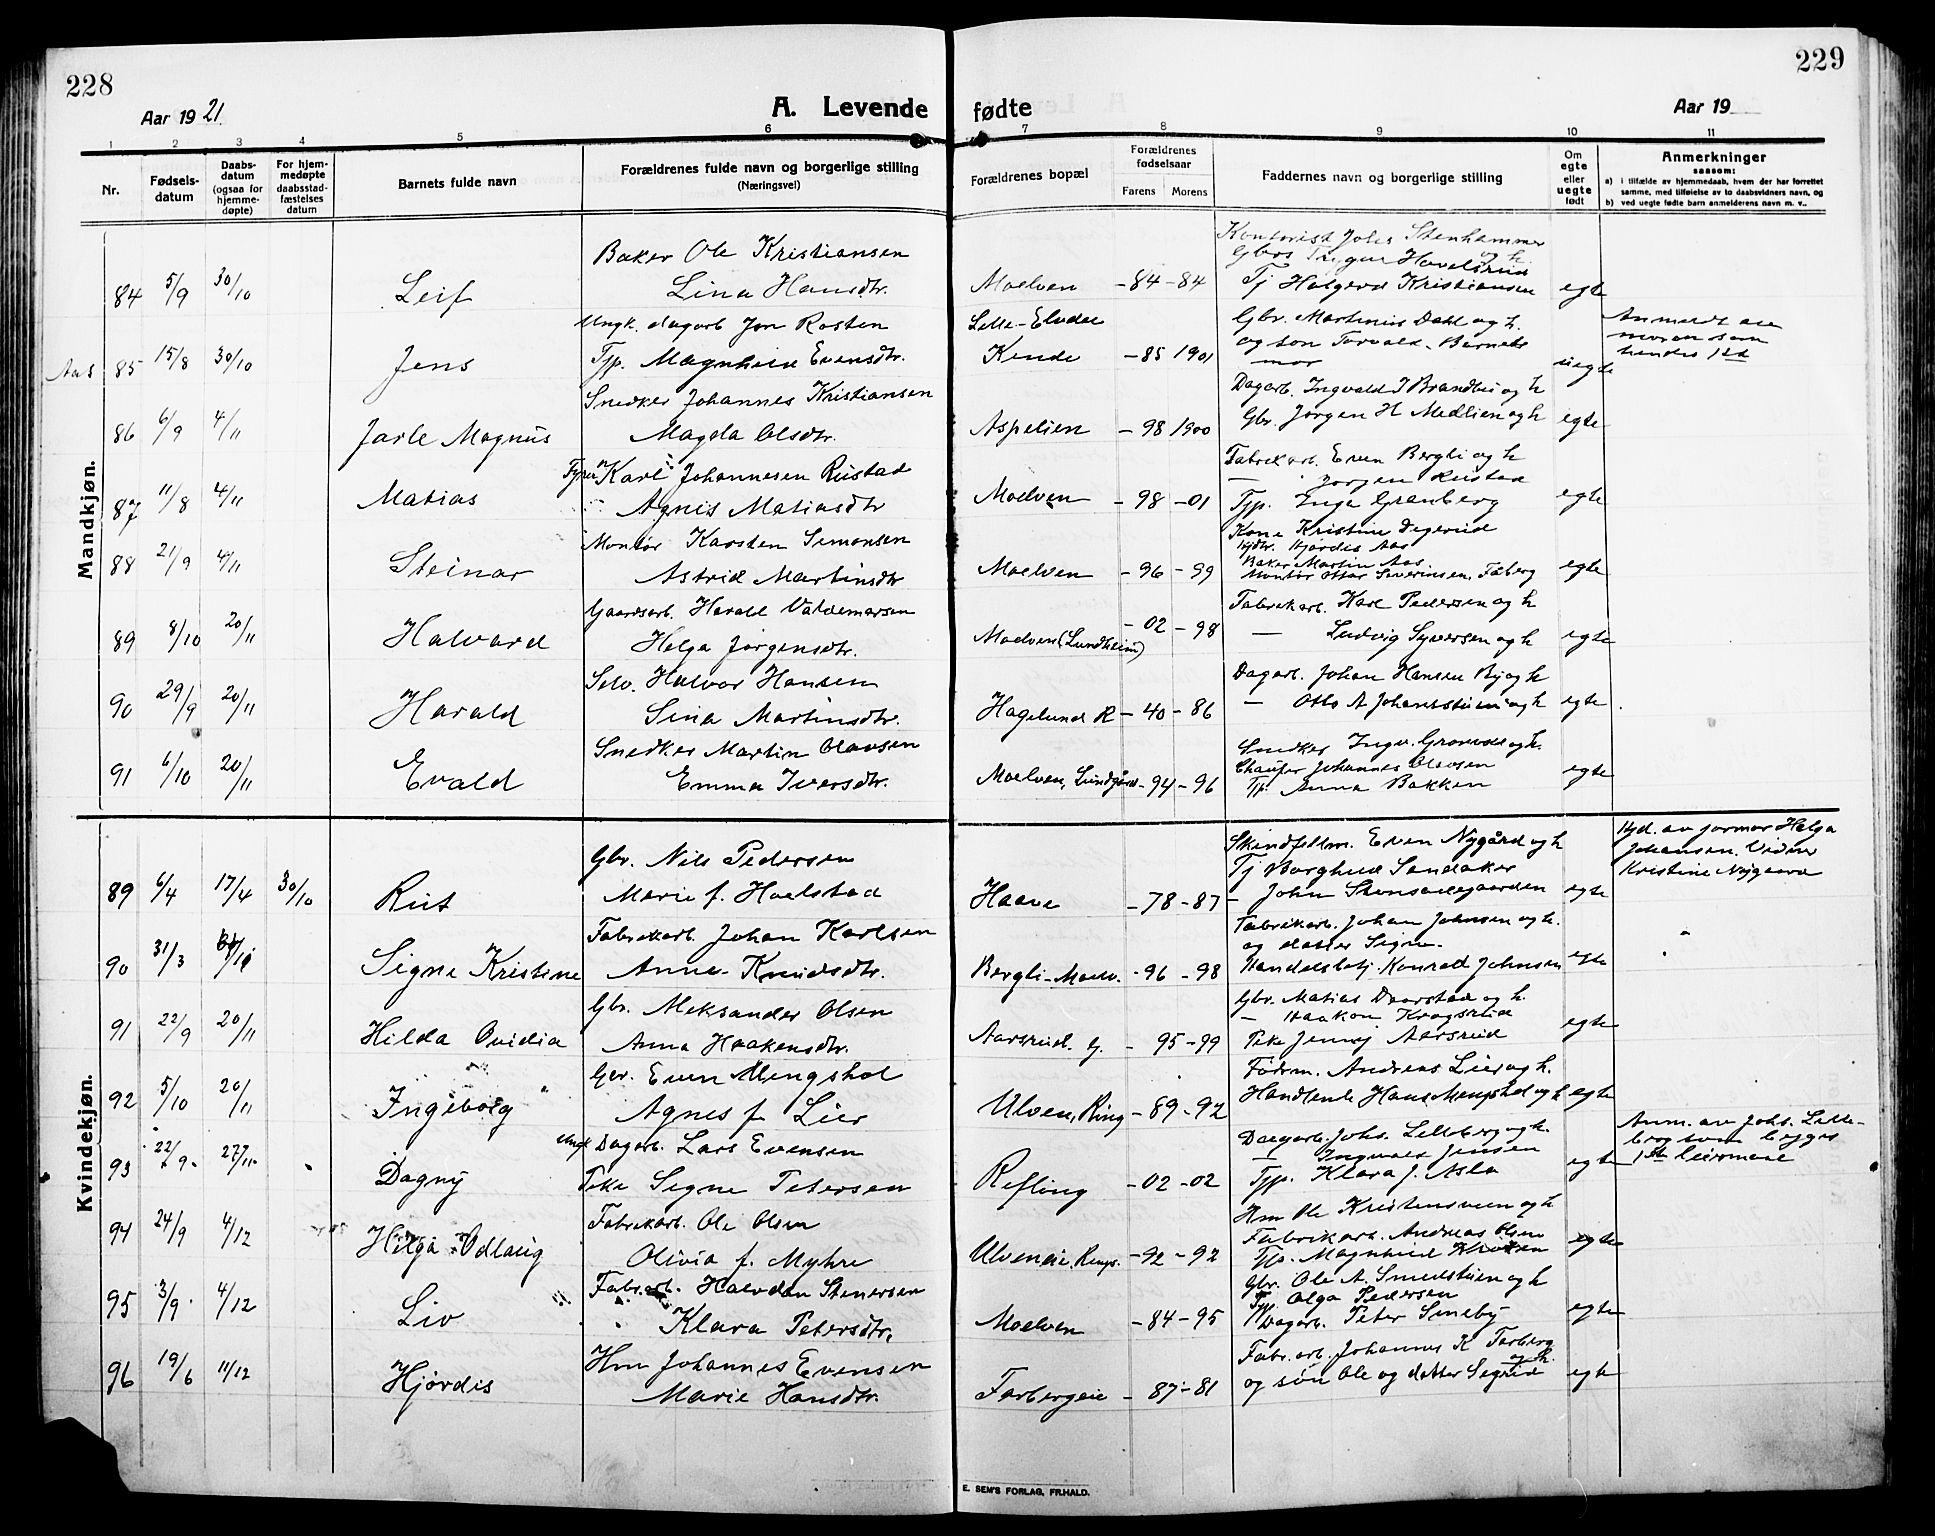 228
229
Aar 1921.
A. Levende fødte
Aar 19
1 2 3 4 5 6 7 8 9 10 11
Nr.
Fødsels-
datum
Daabs-
datum
(ogsaa for
hjemme-
døpte)
For hjem-
medøpte
daabsstad-
fæstelses
datum
Barnets fulde navn
Forældrenes fulde navn og borgerlige stilling
(Næringsvei)
Forældrenes bopæl
Forældrenes
fødselsaar
Farens Morens
Faddernes navn og borgerlige stilling
Om
egte
eller
uegte
født
Anmerkninger
saasom:
a) i tilfælde av hjemmedaab, hvem der har forrettet
samme, med tilføielse av to daabsvidners navn, og
b) ved uegte fødte barn anmelderens navn m. v..
Mandkjøn.
Kontorist Johs Stenhammer
Baker Ole Kristiansen
84 5/9 30/10 Leif Lina Hansdtr. Moelven -84 -84 Tj Kristiansen egte
Ungk. dagarb Jon Rosten Lille-Elvdal Gbr. Martinus Dahl og h. Anmeldt av
Aas 85 15/8 30/10 Jens Tjp. Magnhild Evensdtr. Kinde -85 1901 og son Torvald. Barnets moren som
mor uegte hendes 1st
Snedker Johannes Kristiansen Dagarb. Ingvald J Brandlui og h
86 6/9 4/11 Jarle Magnus Magda Olsdtr. Aspelien -98 1900 Gbr. Jørgen H Medlien og h egte
Karl Johannesen Rustad Fabrikarb. Even Bergli og h
— Jørgen Rustad
87 11/8 4/11 Matias Agnis Matiasdtr Moelven -98 -01 Tjp. Inga Granberg egte
Montør Karsten Simonsen Kone Kristine Degerud
Hjørdis Aas
Baker Martin Aas.
88 21/9 4/11 Steinar Astrid Martinsdtr Moelven -96 -99 Montør Ottar Severinsen, Faberg egte
Gaardsarb. Harald Valdemarsen Fabrikarb. Karl Pedersen og h
89 8/10 20/11 Halvard Helga Jørgensdtr. Moelven (Lundheim) -02 -98 — Ludvig Syversen og h egte
Selv. Halvor Hansen Dagarb. Johan Hansen By og h
90 29/9 20/11 Harald Sina Martinsdtr. Hagelund R -40 -86 — Otto A Johansstuen og h egte
Snedker Martin Olavsen Snedker Ingv. og h.
Chaufør Johannes Olavsen
91 6/10 20/11 Evald Emma Iversdtr. Moelven, Lundgård -94 -96 Tj. Anna Bakken egte
Kvindekjøn.
Gbr. Nils Pedersen Skindfellm. Even Nygård og h Hjd. av farmor Helga
Tj Borghild Sandaker Johansen. Vidner
89 6/4 17/4 30/10 Rut Marie f. Hoelstad Haave -78 -87 - John Stensadegaarden egte Kristine Nygaard
Fabrikarb. Johan Karlsen Fabrikarb. Johan Johnsen og h.
og datter Signe.
90 31/3 Signe Kristine Anne Knudsdtr. Bergli-Moelv. -96 -98 Handelsbetj. Konrad Johnsen egte
Gbr. Aleksander Olsen Gbr. Matias Daarstad og h.
— Haakon Krogsrud
91 22/9 20/11 Hilda Ovidia Anna Haakensdtr. Aarsrud. g. - 95 -99 Pike Jenny Aarsrud egte
Gbr. Even Mengshol Fødrm. Andreas Lier og h.
92 5/10 20/11 Ingeborg Agnes f Lier Ulven, Ring -89 -92 Handlende Hans Mengshol og h egte
Ungk Dagarb. Lars Evensen Dagarb. Johs. Lilleberg og h. Anm. av Johs. Lille-
— Ingvald Jensen berg som begges
93 22/9. 27/11. Dagny Pike Signe Petersen Refling -02 -02 Tjp. Klara J. Asla egte 1st leiermaal
Fabrikarb. Ole Olsen Hm Ole Kristensveen og h
Fabrikarb. Andreas Olsen
94 24/9 4/12 Helga Odlaug Olivia f. Myhre Ulveneie, Rings. -92 -92 Tjp. Magnhild Kroken egte
Fabr.arb. Halvdan Stenersen Gbr. Ole A. Smedstuen og h
Tjp. Olga Pedersen
95 3/9. 4/12 Liv Klara Petersdtr. Moelven -84 -95 Dagarb. Peter Smeby egte
Hm Johannes Evensen Fabr.arb. Johannes K Farberg
og h.
96 19/6 11/12 Hjørdis Marie Hansdtr. Farbergeie -87 -81 og søn Ole og datter Sigrid egte
E. SEM'S FORLAG, FR.HALD.